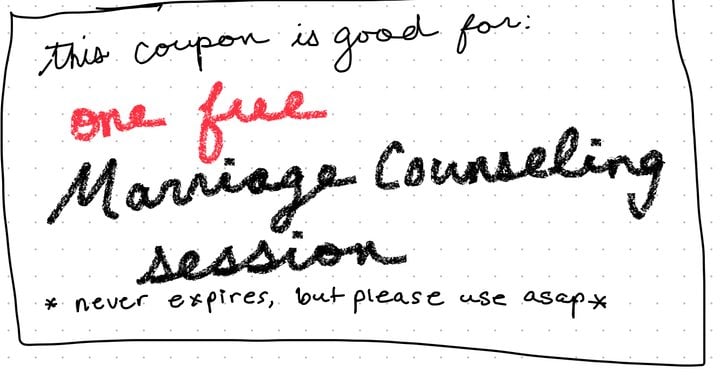 this coupon is good for:
one free
Marriage Counseling
session
* never expires, but please use asap*